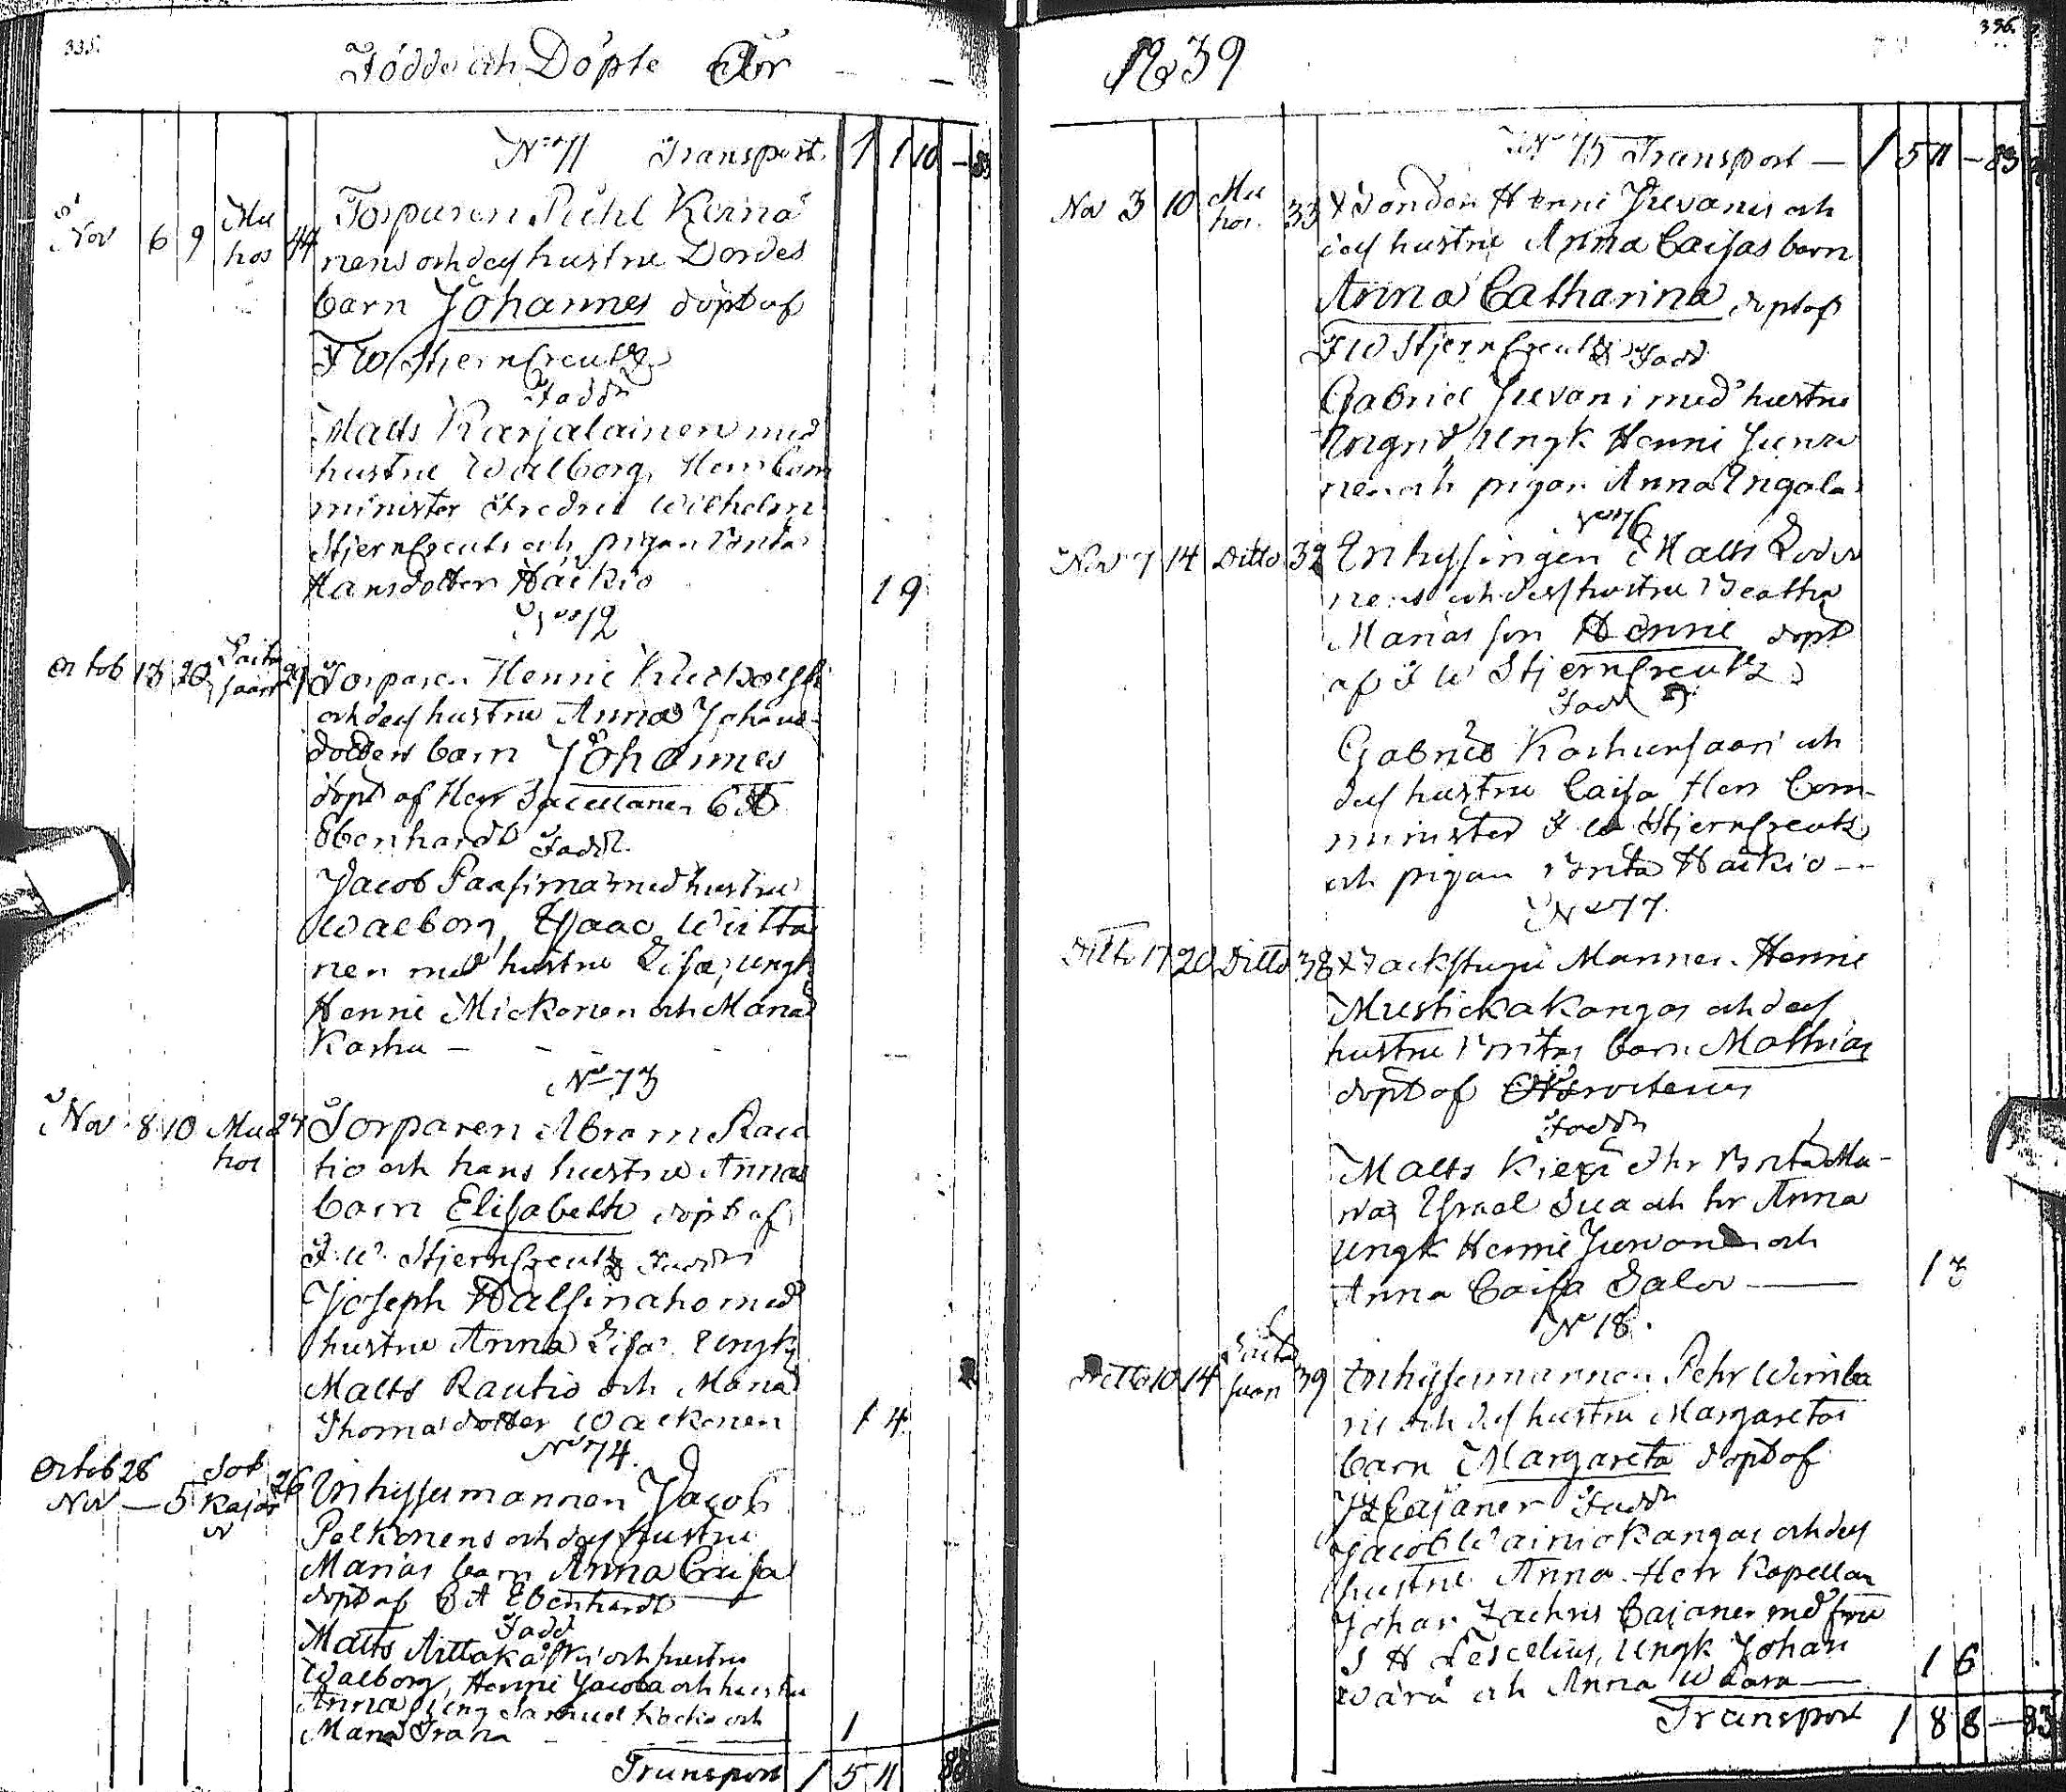 335.
Födde och Döpte År
No 71 Transport. 1 1 10 - 83
Nov 6 9 Mu
hos 44
Torparen Pehl Kerna
nens och dess hustru Bordes
barn Johannes döpt af
F W StjernCreutz
Fadd
Matts Karjalainen med
hustru Walborg, Herr Com
minister Fredric Wilhelm
StjernCreutz och pigan Brita
Hansdotter Häikiö 1 9
No 72
Octob 13 20 29
Torparen Henric
och dess hustru Anna Johans
dotters barn Johannes
döpt af Herr Sacellanen C A
Ebenhardt Fadd.
Jacob Pansima med hustru
Walborg, Isaac Wiitta
nen med hustru Lisa, ungk
Henric Mickonen och Maria
Karhu -
No 73
Nov 8 10 Mu
hos 27
Torparen Abram Rau
tio och hans hustru Annas
barn Elisabeth döpt af
F. W. StjernCreutz Fadd
Joseph Halsinaho med
hustru Anna Lisa. Ungk
Matts Rautio och Maria
Thomasdotter Waekonen 1 4
No 74.
Octob 28 Sot
Nov - 5 Kajar 26
v
Inhysesmannen Jacob
Pelkonens och dess hustru
Marias barn Anna Caisa
döpt af C A Ebenhardt
Fadd
Matts och hustru
Walborg, Henric Jacoba och hustru
Anna ung Samuel och
Maria Trana 1
Transport 1 5 11 83
1839
336.
No 75 Transport - 1 5 11 - 83
Nov 3 10 Mu
hos. 33
Bonden Henric Juvanis och
dess hustru Anna Caisas barn
Anna Catharina, döpt af
F W StjernCreutz Fadd
Gabriel Juvani med hustru
Ungk Henric Junu
nen och pigan Anna
No 76
Nov 7 14 Ditto 32
Inhysingen Matts
nens och dess hustru Beatha
Marias son Henric döpt
af F W StjernCreutz
Fadd
Gabriel Karhunsaari och
dess hustru Caisa Herr Com-
minister F W StjernCreutz
och pigan Brita Häikiö --
No 77.
Ditto 17 20 Ditto 38
Backstugu Mannen Henric
Mustickakangas och dess
hustru Britas barn Mathias
döpt af
Fadd
Matts Kiexi Brita Ma-
ria, Israel Sua och hr Anna
Ungk Henric Juvani och
Anna Caisa Salo 1 3
No 78.
Ditto 10 14 39
Inhysesmannen Pehr
och dess hustru Margaretas
barn Margareta döpt af
J Z Cajaner Fadd
Jacob Wainiokangas och dess
hustru Anna. Herr Kapellan
Johan Zachris Cajaner med fru
S H Tescelius, Ungk Johan
Wärä och Anna Waara 1 6
Transport 1 8 8 - 83